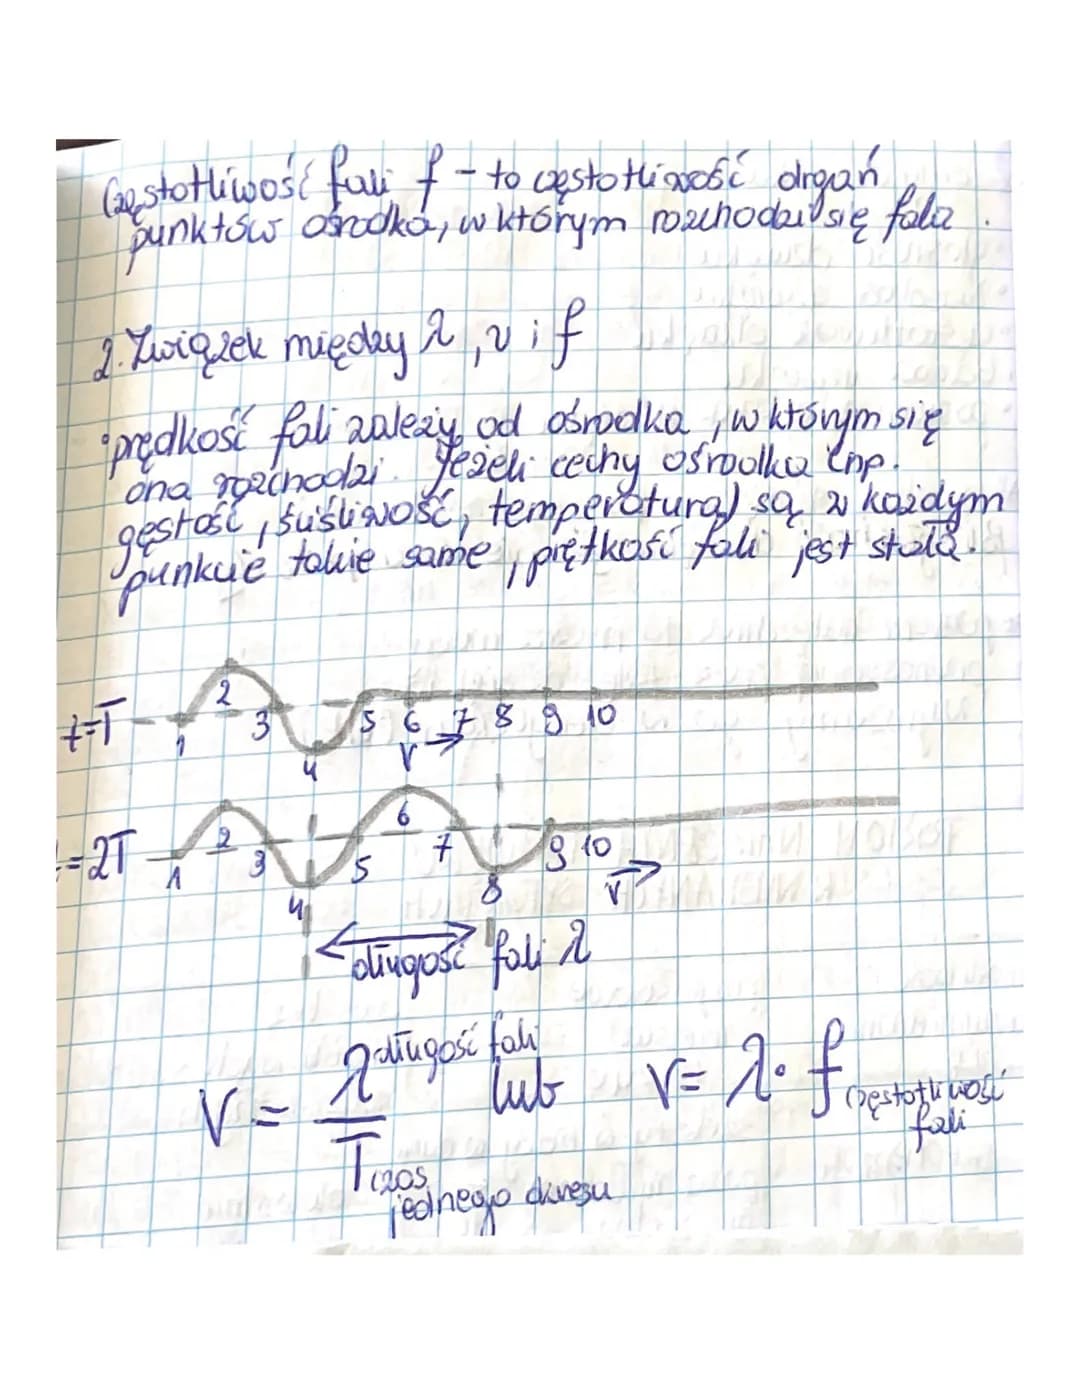 Częstotliwość fali f - to częstotliwość drgań
punktów ośrodka, w którym rozchodzi się fala.
2. Związek między λ, v i f
• prędkość fali zależy od ośrodka, w którym się
ona rozchodzi. Jeżeli cechy ośrodka (np.
gęstość, ściśliwość, temperatura) są w każdym
punkcie takie same, prętkość fali jest stała.
t=T 1 2 3 4 5 6 7 8 9 10
V→
=2T 1 2 3 4 5 6 7 8 9 10
V→
długość fali λ
V = λ/T lub V = λ · f
długość fali
częstotliwość
fali
czas
jednego okresu